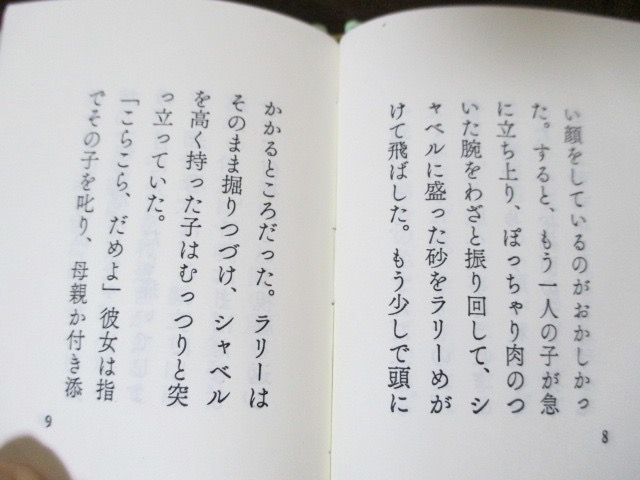 い顔をしているのがおかしかっ
た。すると、もう一人の子が急
に立ち上り、ぽっちゃり肉のつ
いた腕をわざと振り回して、シ
ャベルに盛った砂をラリーめが
けて飛ばした。もう少しで頭に
8
かかるところだった。ラリーは
そのまま掘りつづけ、シャベル
を高く持った子はむっつりと突
っ立っていた。
「こらこら、だめよ」彼女は指
でその子を叱り、母親か付き添
9